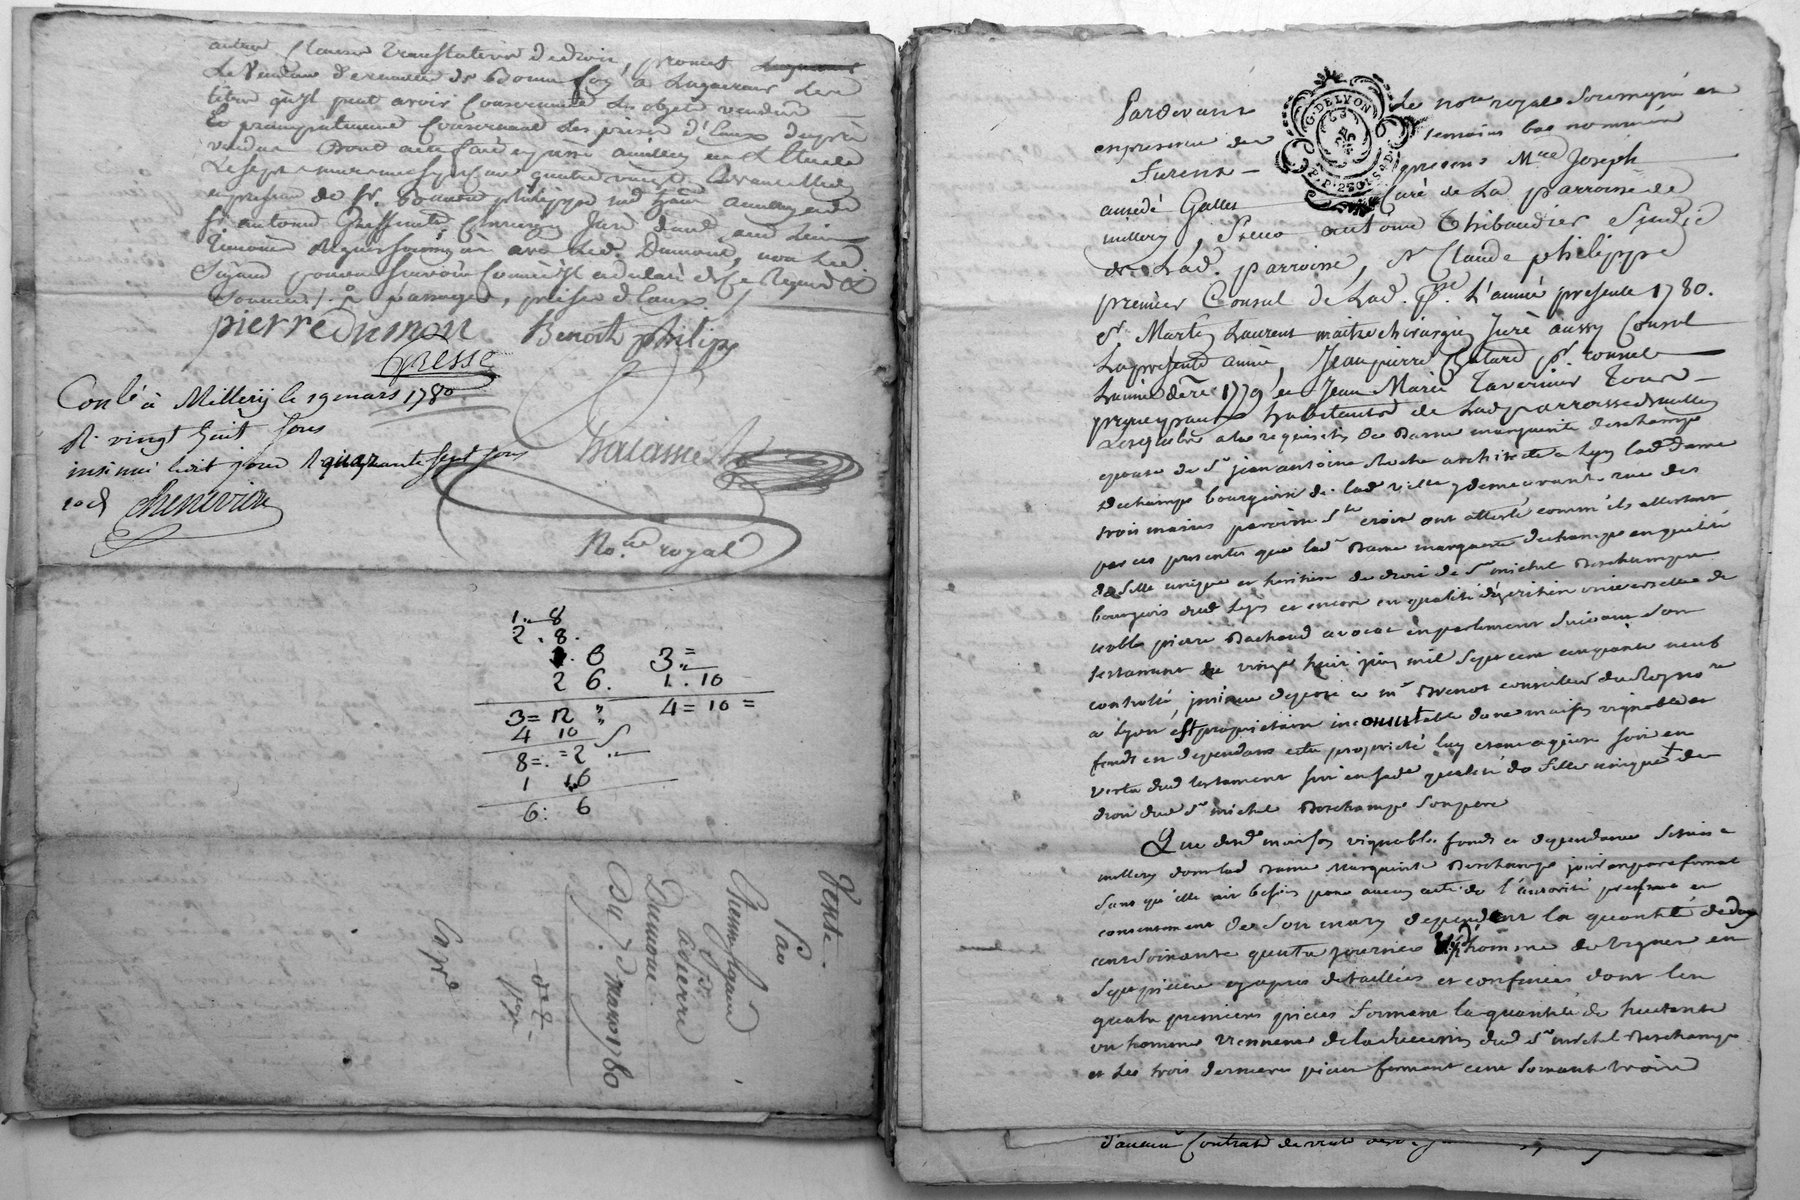 autres clauses translatives de droit, promet
le vendeur de remettre de bonne foy a l'acquereur les
titres qu'il peut avoir concernant les objets vendus
et principalement concernant les prises d'eaux
vendus Dont acte fait et passé a millery en l'Etude
le sept mars mil sept cent quatre vingt avant midy
en presence de sr. Benoit philippe md
sr antoine Gresse chirurgien Juré
temoins requis soussignés avec led. Dumont, non led
Sigaud pour ne sçavoir comme il a declaré de ce requis &
sommé ./. passages, prises d'eaux /
pierre dumon Benoit philipe
Gresse
Conlé à Millery le 19 mars 1780.
R. vingt huit sous
insinué led jour R quarante sept sous
Chenevier
Nore royal
1. 8
2. 8.
1. 6 3 =
2 6. 1. 10
3 = 12 " 4 = 10 =
4 10
8 =. = 2
1 16
6: 6
Vente
Par
Sigaud
à sr.
pierre
Dumont
Du 7. mars 1780
Exp.
G. DE LYON
P.P. 2 SOLS 8 D.
Pardevant le nore royal soussigné en
en presence des temoins bas nommés
Furent presens Mre Joseph
amédé Galles Curé de La parroisse de
millery, Sieur antoine Thibaudier Sindic
de Lad. parroisse, Sr Claude philippe
premier Consul de Lad. psse L'année presente 1780.
Sr Martin Laurent maitre chirurgien Juré aussy Consul
La presente année, Jean pierre Chatard pr. consul
L'année dere 1779 et Jean Marie Tavernier Tous
principaux habitants de Lad parroisse de millery
Lesquels a la requisition de Dame marguerite deschamps
epouse de Sr jean antoine Roche architecte a Lyon lad dame
deschamps bourgeoise de lad ville y demeurante rue des
trois maries paroisse Ste croix ont attesté comm'ils attestent
par ces presentes que lad Dame marguerite deschamps en qualité
de fille unique et heritiere de droit de Sr michel Deschamps
bourgeois dud Lyon et encore en qualité d'heritiere universelle de
noble pierre Bachaud avocat en parlement suivant son
testament du vingt huit juin mil sept cent cinquante neuf
controllé, insinué deposé
a Lyon est proprietaire incomutable d'une maison vignoble et
fonds en dependans cette propriété luy etant aquise soit en
vertu dud testament soit en sade qualité de fille unique de
droit dud Sr michel Deschamps son pere
Que desde maison vignoble fonds et dependance situés a
millery dont lad Dame Marguerite Deschamps jouit en parafernal
sans qu'elle ait besoin pour aucun acte de l'autorité presence et
consentement de son mary dependent la quantité de deux
cent soixante quatre journées d'homme de vignes en
sept pieces cy apres detaillées et confinées dont les
quatre premieres pieces forment la quantité de huitante
un hommes viennent de la succession dud Sr michel Deschamps
et les trois dernieres pieces formant cent soixante trois
contrats de vente